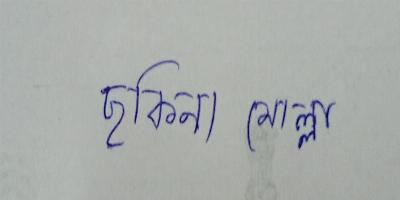 ছকিনা মোল্লা